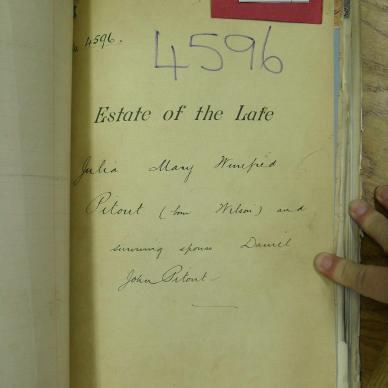 4596.
4596
Estate of the Late
Julia Mary Winefred
Pitout (born Wilson) and
surviving spouse Daniel
John Pitout